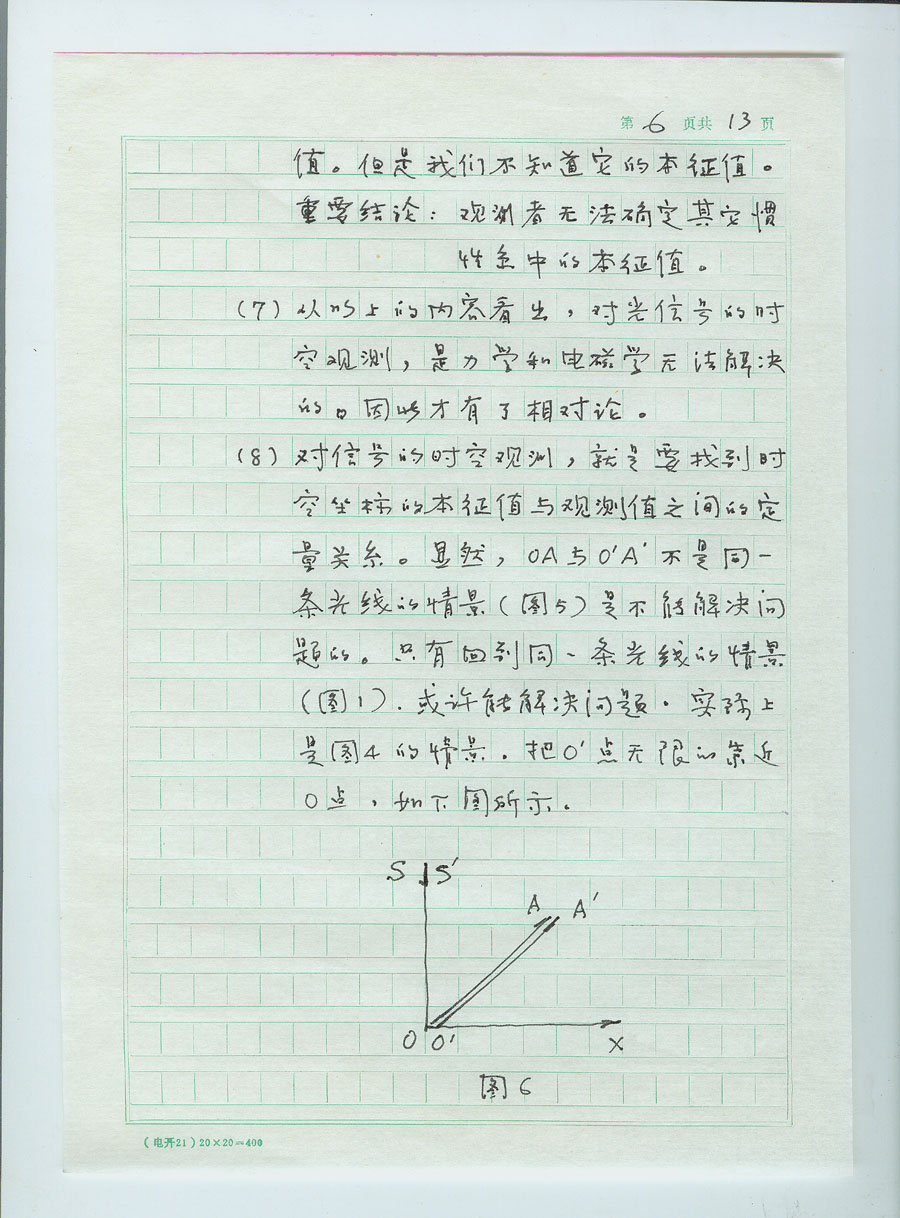 第 6 页共 13 页
值。但是我们不知道它的本征值。
重要结论：观测者无法确定其它惯
性系中的本征值。
(7) 从以上的内容看出，对光信号的时
空观测，是力学和电磁学无法解决
的。因此才有了相对论。
(8) 对信号的时空观测，就是要找到时
空坐标的本征值与观测值之间的定
量关系。显然，OA与O'A'不是同一
条光线的情景（图5）是不能解决问
题的。只有回到同一条光线的情景
（图1）.或许能解决问题.实际上
是图4的情景.把O'点无限的靠近
O点，如下图所示.
S S'
A A'
O O' X
图6
(电开21) 20×20=400